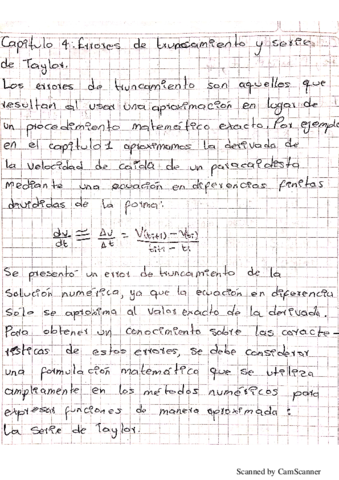 Capitulo 4: Errores de truncamiento y serie
de Taylor.
Los errores de truncamiento son aquellos que
resultan al usar una aproximación en lugar de
un procedimiento matemático exacto. Por ejemplo
en el capítulo 1 aproximamos la derivada de
la velocidad de caída de un paracaidista
mediante una ecuación en diferencias finitas
divididas de la forma:
dv/dt ≅ Δv/Δt = V(ti+1) - V(ti) / ti+1 - ti
Se presentó un error de truncamiento de la
solución numérica, ya que la ecuación en diferencia
Solo se aproxima al valor exacto de la derivada.
Para obtener un conocimiento sobre las caracte-
rísticas de estos errores, se debe considerar
una formulación matemática que se utiliza
ampliamente en los métodos numéricos para
expresar funciones de manera aproximada:
La serie de Taylor.
Scanned by CamScanner